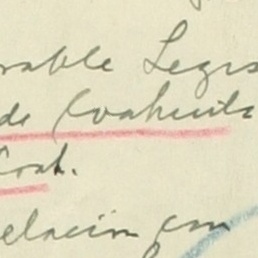 rable Legis
de Coahuila
Coah.
elación con